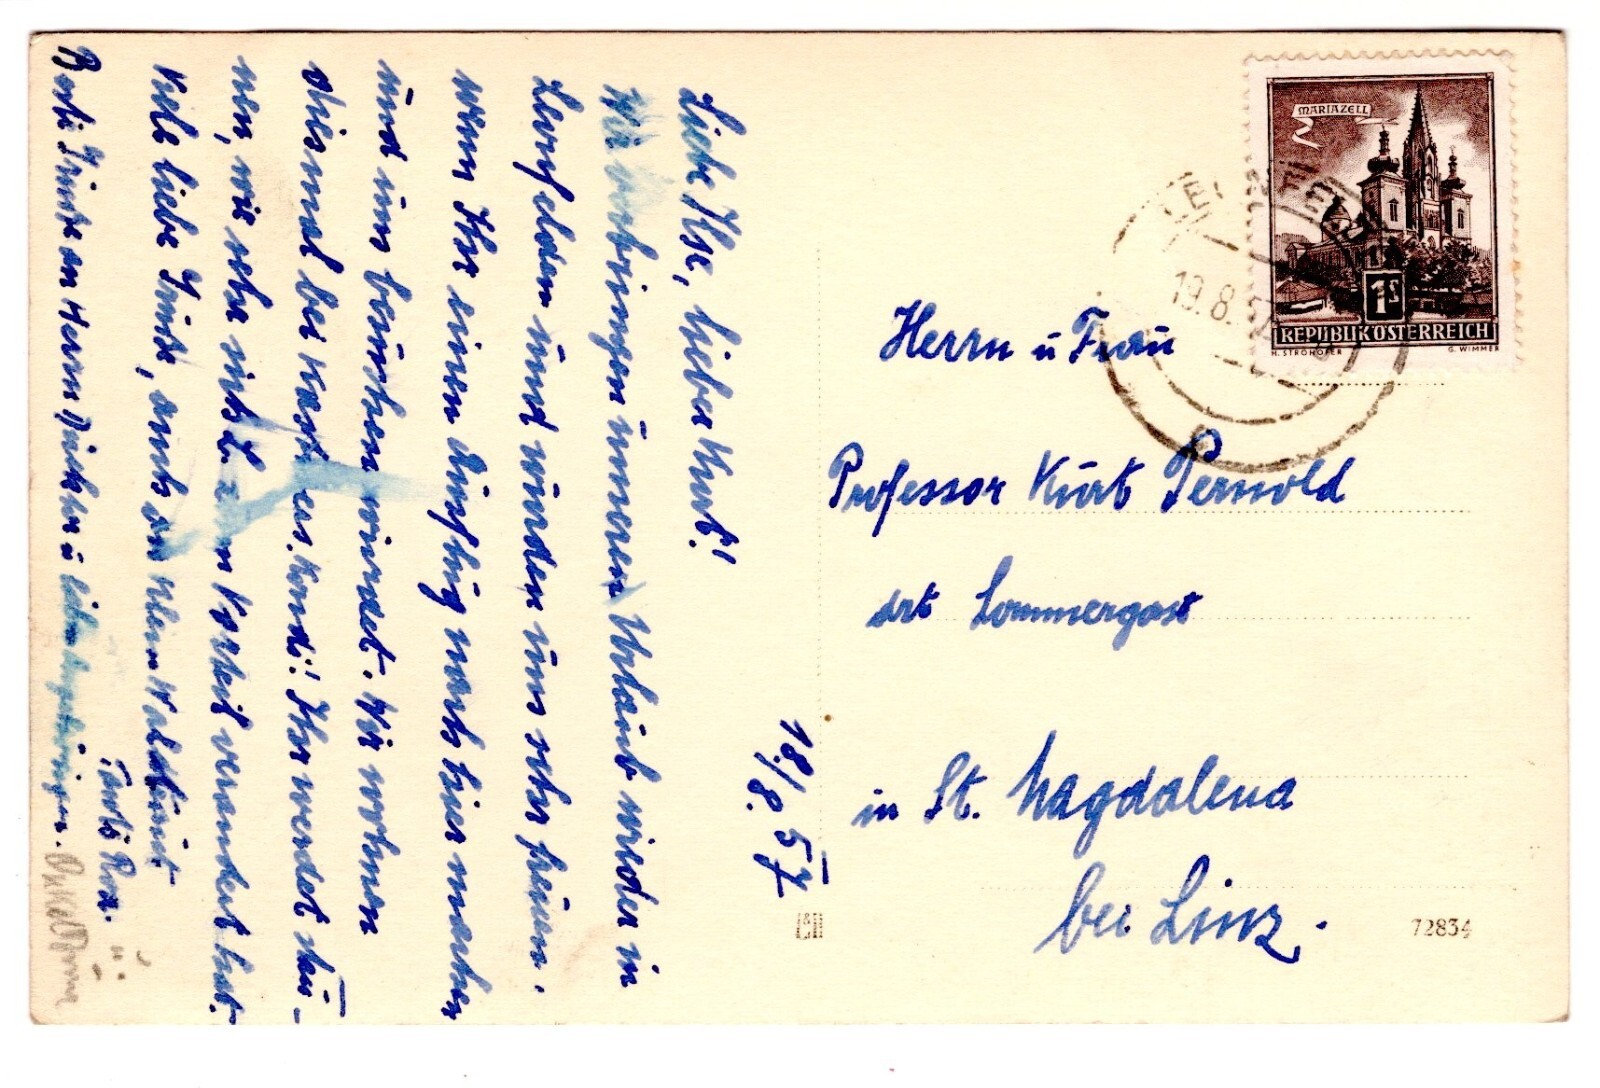 18./8. 57
Liebe Ilse, lieber Kurt!
Wir verbringen unseren Urlaub wieder in
Leonfelden und würden uns sehr freuen,
wenn Ihr einen Ausflug nach hier machen
und uns besuchen würdet. Wir wohnen
diesmal bei Kast
Ihr werdet stau-
nen, wie sehr sich L. zum Vorteil verändert hat.
Viele liebe Grüße, auch an
Tante Rosa.
Beste Grüße an Herrn
u
Herrn u Frau
Professor Kurt Pernold
dzt Sommergast
in St. Magdalena
bei Linz.
MARIAZELL
1S
REPUBLIK ÖSTERREICH
H. STROHOFER G. WIMMER
19.8.
72834